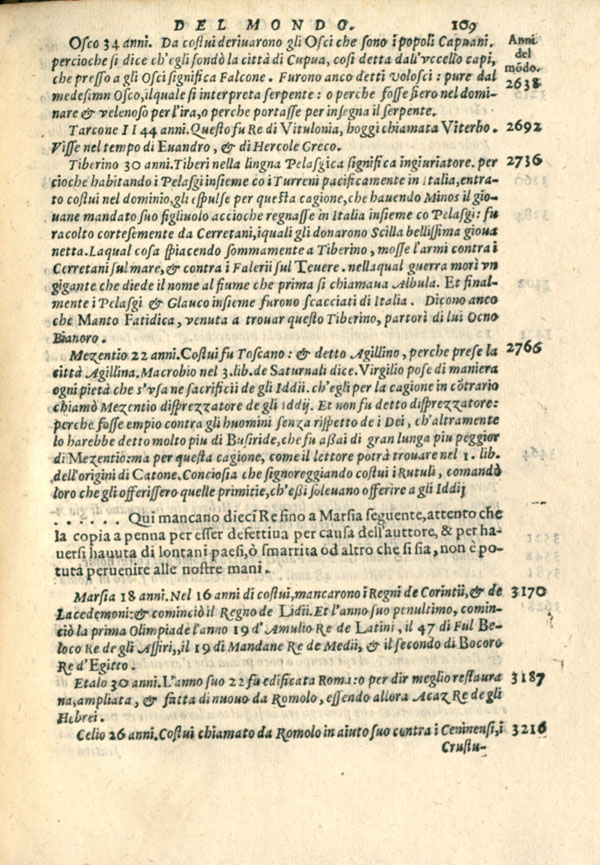 DEL MONDO. 109
Osco 34 anni. Da costui deriuarono gli Osci che sono i popoli Capuani. Anni del mõdo.
percioche si dice ch'egli fondò la città di Cupua, così detta dall'vccello capi,
che presso a gli Osci significa Falcone. Furono anco detti volosci: pure dal 2638
medesimn Osco, ilquale si interpreta serpente: o perche fosse fiero nel domi-
nare & velenoso per l'ira, o perche portasse per insegna il serpente.
Tarcone II 44 anni. Questo fu Re di Vitulonia, hoggi chiamata Viterbo. 2692
Visse nel tempo di Euandro, & di Hercole Greco.
Tiberino 30 anni. Tiberi nella lingna Pelasgica significa ingiuriatore. per 2736
cioche habitando i Pelasgi insieme co i Turreni pacificamente in Italia, entra-
to costui nel dominio, gli espulse per questa cagione, che hauendo Minos il gio-
uane mandato suo figliuolo accioche regnasse in Italia insieme co Pelasgi: fu
racolto cortesemente da Cerretani, iquali gli donarono Scilla bellissima gioua
netta. Laqual cosa spiacendo sommamente a Tiberino, mosse l'armi contra i
Cerretani sul mare, & contra i Falerii sul Teuere. nellaqual guerra morì vn
gigante che diede il nome al fiume che prima si chiamaua Albula. Et final-
mente i Pelasgi & Glauco insieme furono scacciati di Italia. Dicono anco
che Manto Fatidica, venuta a trouar questo Tiberino, partorì di lui Ocno
Bianoro.
Mezentio 22 anni. Costui fu Toscano: & detto Agillino, perche prese la 2766
città Agillina. Macrobio nel 3. lib. de Saturnali dice. Virgilio pose di maniera
ogni pietà che s'vsa ne sacrificii de gli Iddii. ch'egli per la cagione in cõtrario
chiamò Mezentio disprezzatore de gli Iddij. Et non fu detto disprezzatore:
perche fosse empio contra gli huomini senza rispetto de i Dei, ch'altramente
lo harebbe detto molto piu di Busiride, che fu aßai di gran lunga piu peggior
di Mezentio: ma per questa cagione, come il lettore potrà trouare nel 1. lib.
dell'origini di Catone. Conciosia che signoreggiando costui i Rutuli, comandò
loro che gli offerissero quelle primitie, ch'eßi soleuano offerire a gli Iddij
. . . . . . Qui mancano dieci Re fino a Marsia seguente, attento che
la copia a penna per esser defettiua per causa dell'auttore, & per ha-
uersi hauuta di lontani paesi, ò smarrita od altro che si sia, non è po-
tuta peruenire alle nostre mani.
Marsia 18 anni. Nel 16 anni di costui, mancarono i Regni de Corintii, & de 3170
Lacedemoni: & cominciò il Regno de Lidii. Et l'anno suo penultimo, comin-
ciò la prima Olimpiade l'anno 19 d'Amulio Re de Latini, il 47 di Ful Be-
loco Re de gli Assiri,, il 19 di Mandane Re de Medii, & il secondo di Bocoro
Re d'Egitto.
Etalo 30 anni. L'anno suo 22 fu edificata Roma: o per dir meglio restaura 3187
na, ampliata, & fatta di nuouo da Romolo, essendo allora Acaz Re de gli
Hebrei.
Celio 26 anni. Costui chiamato da Romolo in aiuto suo contra i Ceninensi, i 3216
Crustu-